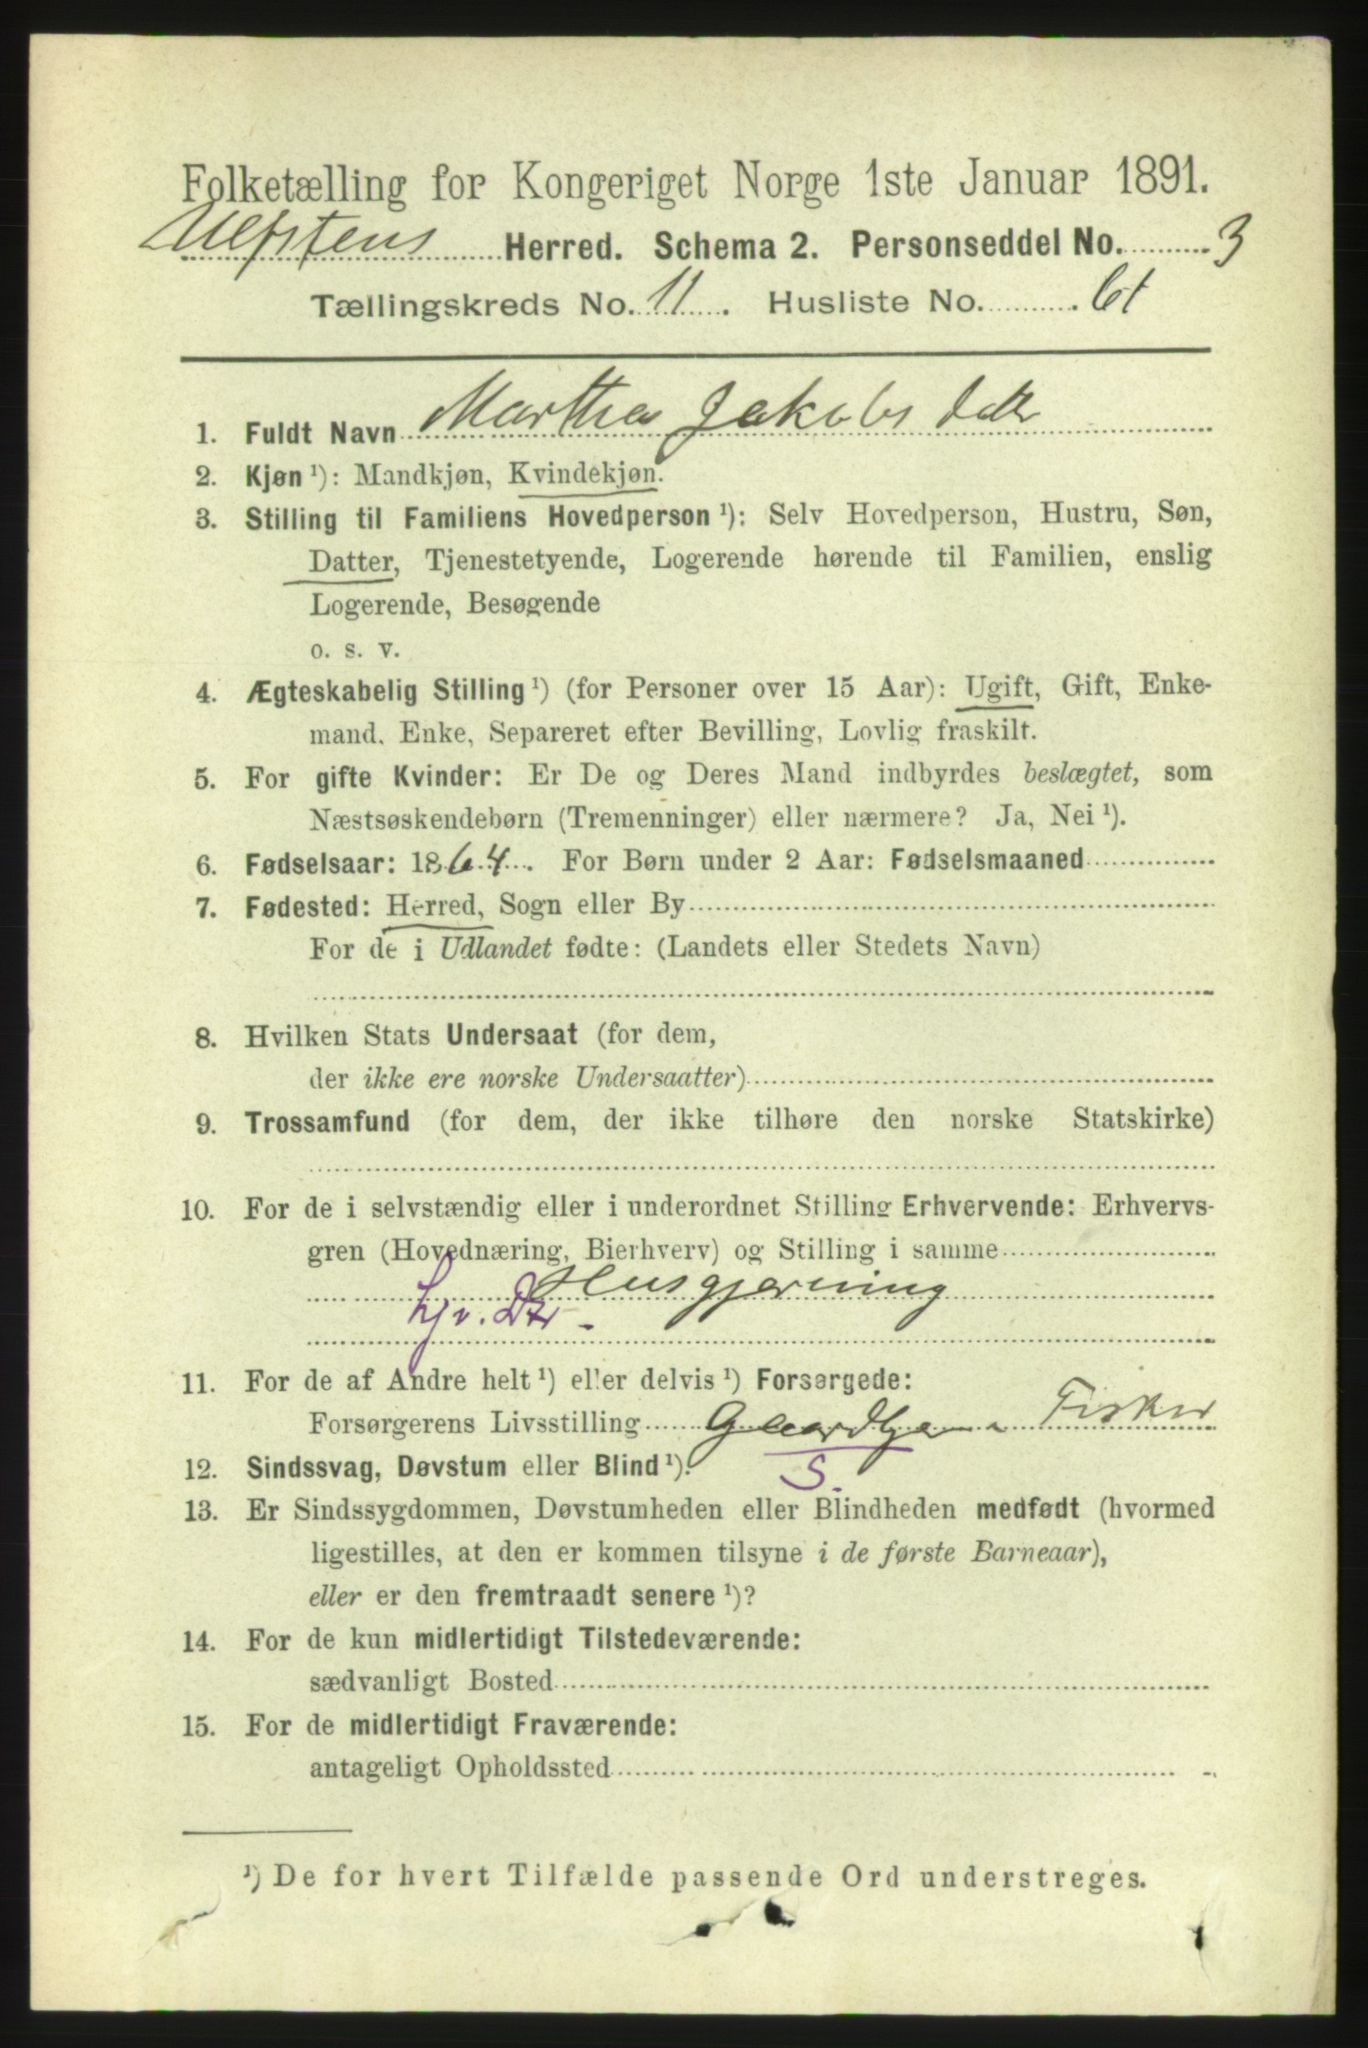 Folketælling for Kongeriget Norge 1ste Januar 1891.
Ulfstens Herred. Schema 2. Personseddel No. 3
Tællingskreds No. 11. Husliste No. 61
1. Fuldt Navn Martha Jakobsdatter
2. Kjøn ¹): Mandkjøn, Kvindekjøn.
3. Stilling til Familiens Hovedperson ¹): Selv Hovedperson, Hustru, Søn,
Datter, Tjenestetyende, Logerende hørende til Familien, enslig
Logerende, Besøgende
o. s. v.
4. Ægteskabelig Stilling ¹) (for Personer over 15 Aar): Ugift, Gift, Enke-
mand, Enke, Separeret efter Bevilling, Lovlig fraskilt.
5. For gifte Kvinder: Er De og Deres Mand indbyrdes beslægtet, som
Næstsøskendebørn (Tremenninger) eller nærmere? Ja, Nei ¹).
6. Fødselsaar: 1864. For Børn under 2 Aar: Fødselsmaaned
7. Fødested: Herred, Sogn eller By
For de i Udlandet fødte: (Landets eller Stedets Navn)
8. Hvilken Stats Undersaat (for dem,
der ikke ere norske Undersaatter)
9. Trossamfund (for dem, der ikke tilhøre den norske Statskirke)
10. For de i selvstændig eller i underordnet Stilling Erhvervende: Erhvervs-
gren (Hovednæring, Bierhverv) og Stilling i samme
Husgjerning
hjv. Dtr -
11. For de af Andre helt ¹) eller delvis ¹) Forsørgede:
Forsørgerens Livsstilling Fisker
S.
12. Sindssvag, Døvstum eller Blind ¹).
13. Er Sindssygdommen, Døvstumheden eller Blindheden medfødt (hvormed
ligestilles, at den er kommen tilsyne i de første Barneaar),
eller er den fremtraadt senere ¹)?
14. For de kun midlertidigt Tilstedeværende:
sædvanligt Bosted
15. For de midlertidigt Fraværende:
antageligt Opholdssted
¹) De for hvert Tilfælde passende Ord understreges.